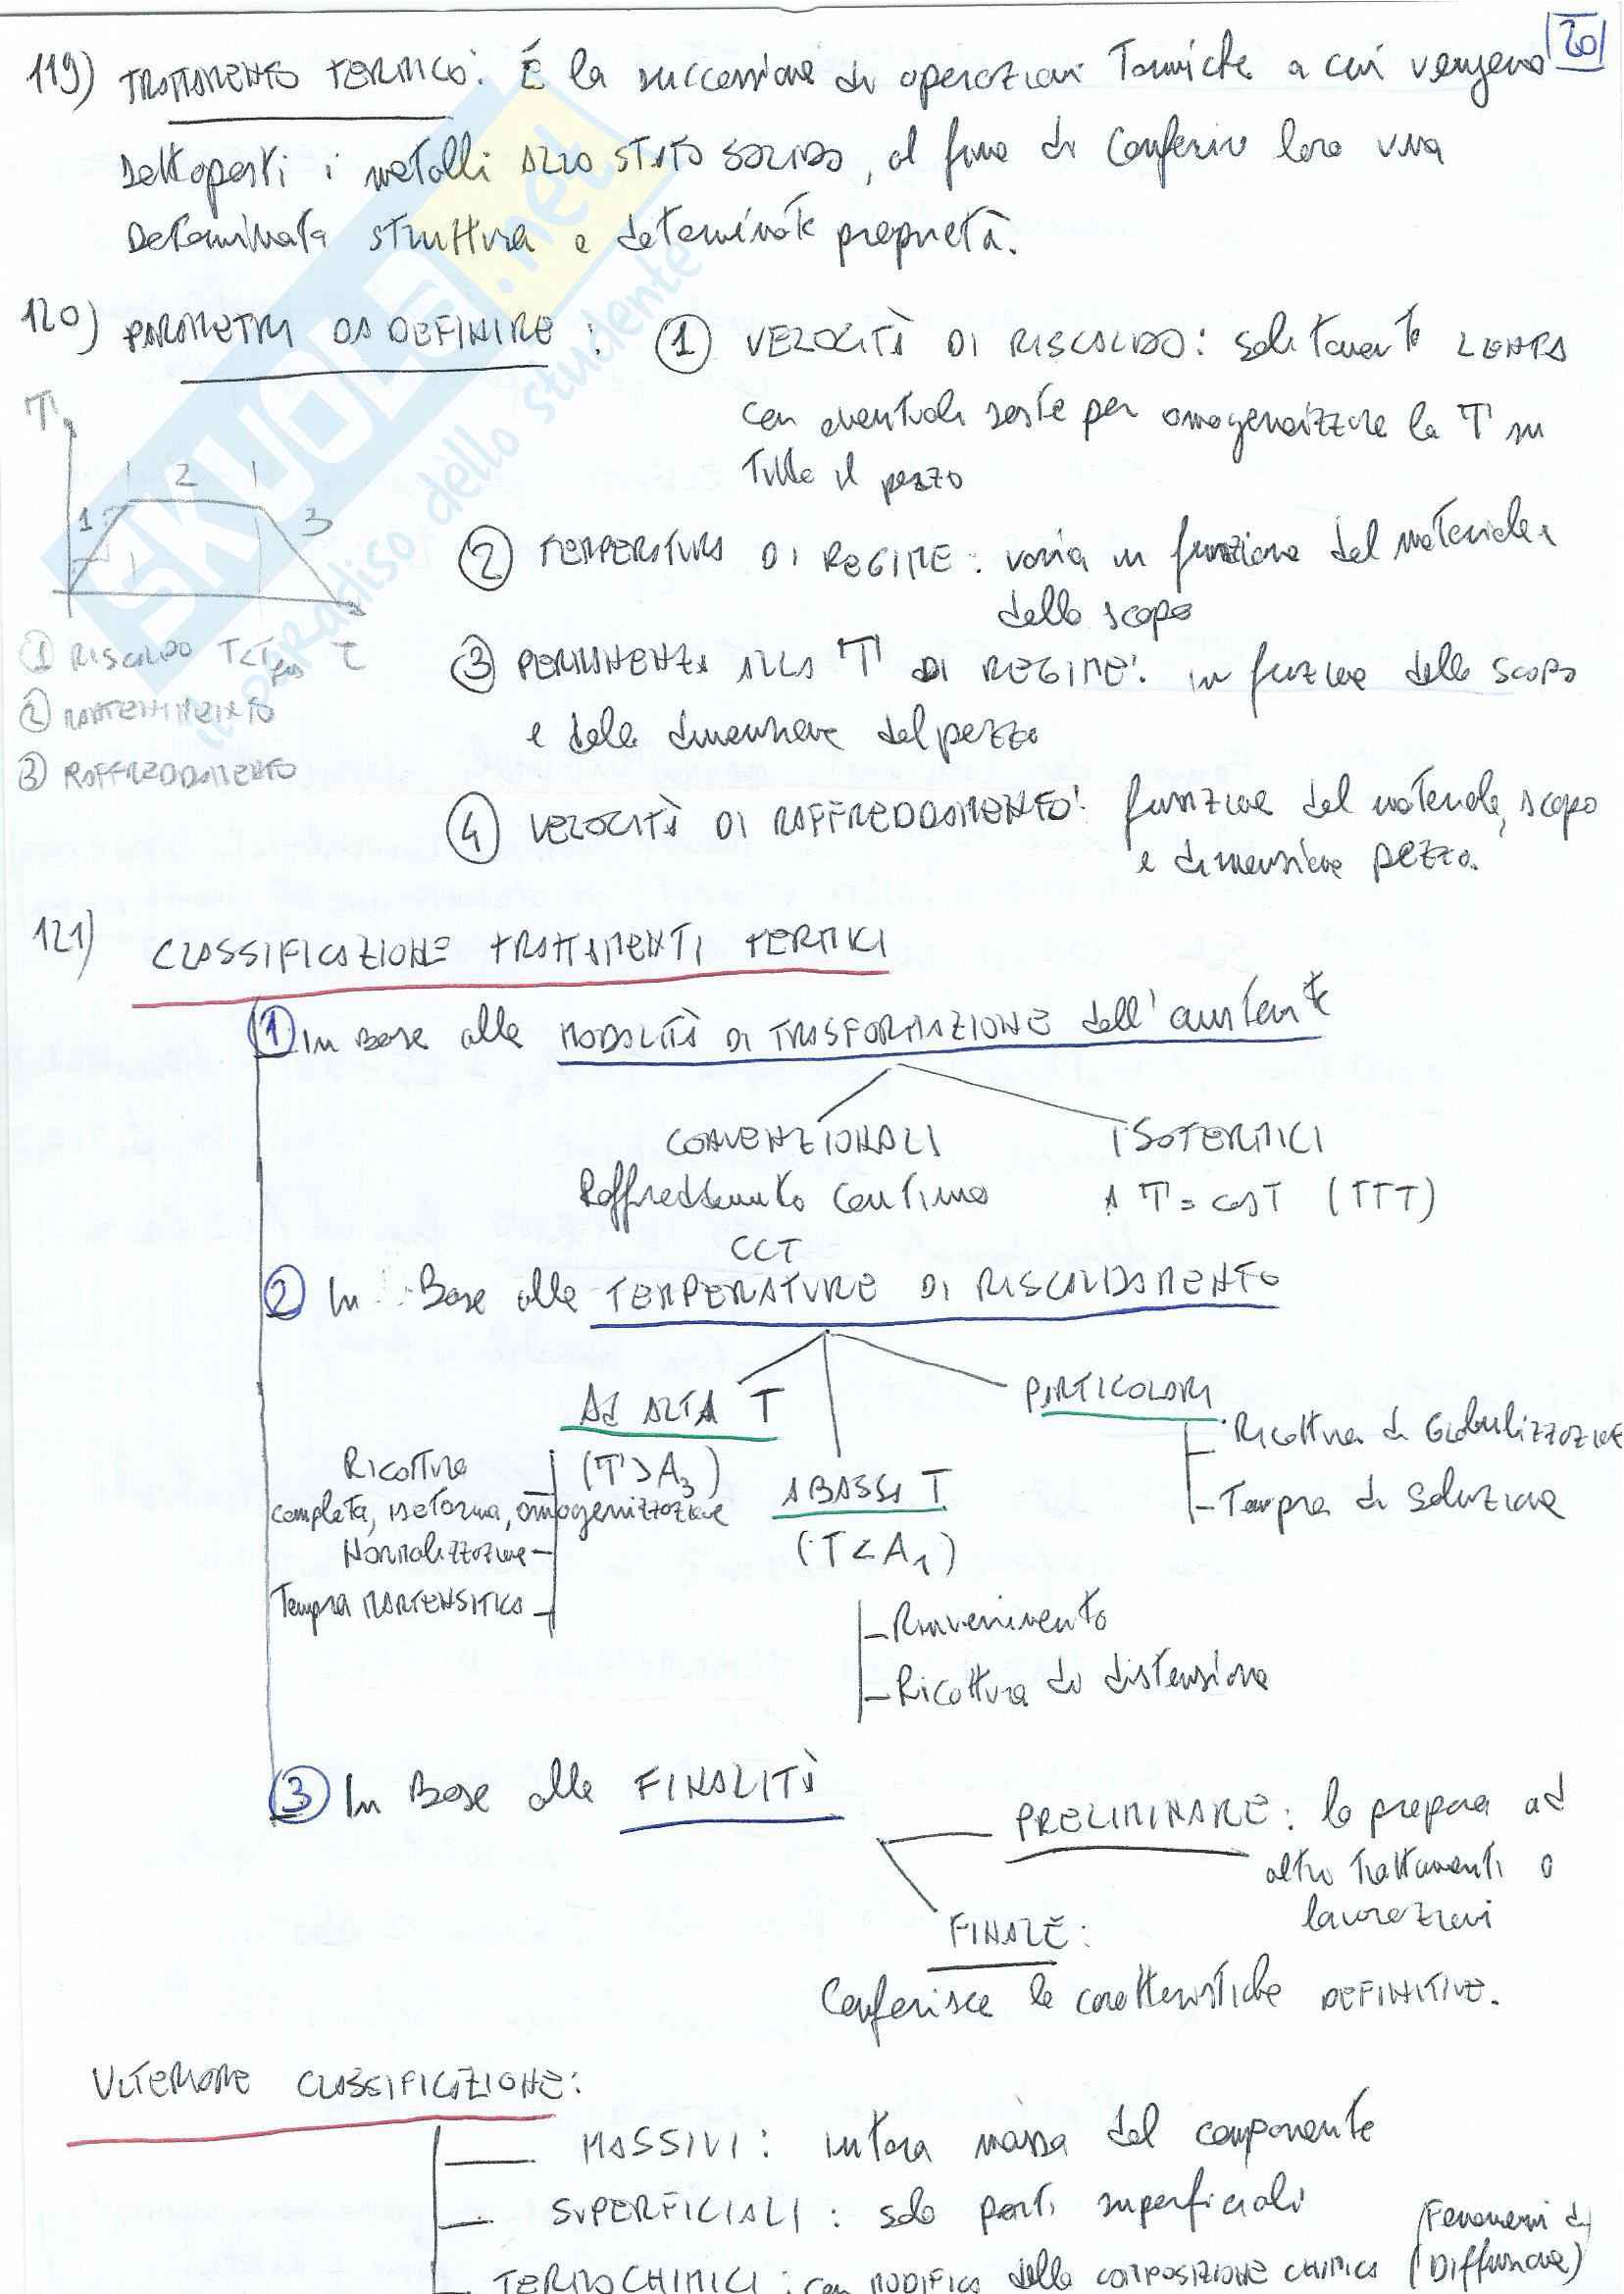 20
119) TRATTAMENTO TERMICO: É la successione di operazioni Termiche a cui vengono
Sottoposti i metalli ALLO STATO SOLIDO, al fine di Conferire loro una
Determinata struttura e determinate proprietà.
120) PARAMETRI DA DEFINIRE : ① VELOCITÀ DI RISCALDO: solitamente LENTA
con eventuali soste per omogeneizzare la T su
Tutto il pezzo
T
1 2 3
② TEMPERATURA DI REGIME: varia in funzione del materiale e
dello scopo
① RISCALDO T<Tfus τ
② MANTENIMENTO
③ RAFFREDDAMENTO
③ PERMANENZA ALLA T DI REGIME: in funzione dello SCOPO
e della dimensione del pezzo
④ VELOCITÀ DI RAFFREDDAMENTO: funzione del materiale, scopo
e dimensione pezzo.
121) CLASSIFICAZIONE TRATTAMENTI TERMICI
① In Base alle MODALITÀ DI TRASFORMAZIONE dell'austenite
CONVENZIONALI ISOTERMICI
Raffreddamento Continuo A T = cosT (TTT)
CCT
② In Base alle TEMPERATURE DI RISCALDAMENTO
AD ALTA T
(T>A3)
Ricottura
completa, isoterma, omogeneizzazione
Normalizzazione
Tempra MARTENSITICA
A BASSA T
(T<A1)
Rinvenimento
Ricottura di distensione
PARTICOLARI
Ricottura di Globulizzazione
Tempra di Soluzione
③ In Base alle FINALITÀ
PRELIMINARE: lo prepara ad
altri Trattamenti o
lavorazioni
FINALE:
Conferisce le caratteristiche DEFINITIVE.
ULTERIORE CLASSIFICAZIONE:
MASSIVI: intera massa del componente
SUPERFICIALI: solo parti superficiali
TERMOCHIMICI: con MODIFICA della COMPOSIZIONE CHIMICA (Fenomeni di
Diffusione)
SKUOLA.net
il paradiso dello studente